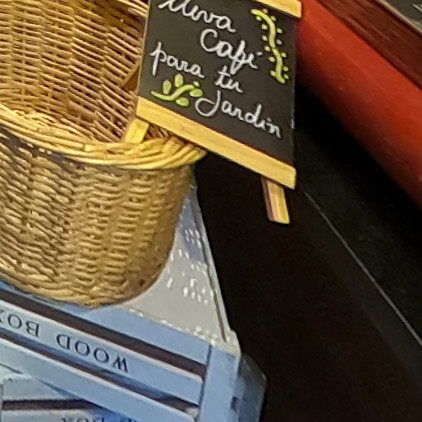 Lleva
Café
para tu
Jardín
WOOD BOX
BOX